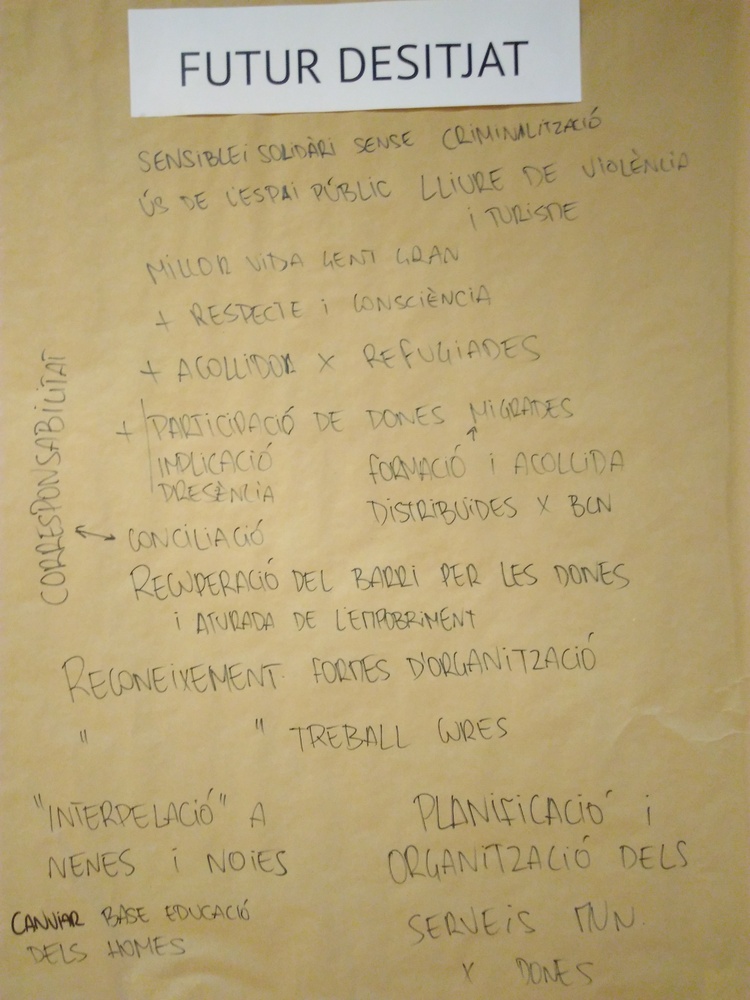 FUTUR DESITJAT
SENSIBLE i SOLIDÀRI SENSE CRIMINALITZACIÓ
ÚS DE L'ESPAI PÚBLIC LLIURE DE VIOLÈNCIA
i TURISME
MILLOR VIDA GENT GRAN
+ RESPECTE i CONSCIÈNCIA
+ ACOLLIDOR X REFUGIADES
+ PARTICIPACIÓ DE DONES MIGRADES
IMPLICACIÓ
PRESÈNCIA
FORMACIÓ i ACOLLIDA
DISTRIBUÏDES X BCN
CORRESPONSABILITAT
CONCILIACIÓ
RECUPERACIÓ DEL BARRI PER LES DONES
i ATURADA DE L'EMPOBRIMENT
RECONEIXEMENT FORMES D'ORGANITZACIÓ
" " TREBALL CURES
"INTERPELACIÓ" A
NENES i NOIES
CANVIAR BASE EDUCACIÓ
DELS HOMES
PLANIFICACIÓ i
ORGANITZACIÓ DELS
SERVEIS MUN.
X DONES